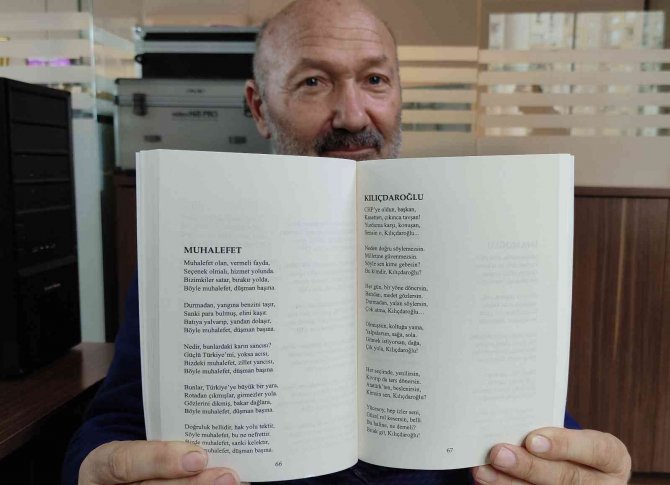 MUHALEFET
Muhalefet olan, vermeli fayda,
Seçenek olmalı, hizmet yolunda.
Bizimkiler satar, bırakır yolda,
Böyle muhalefet, düşman başına.
Durmadan, yangına benzini taşır,
Sanki para bulmuş, elini kaşır.
Batıya yalvarıp, yandan dolaşır,
Böyle muhalefet, düşman başına.
Nedir, bunlardaki karın sancısı?
Güçlü Türkiye'mi, yoksa acısı,
Bizdeki muhalefet, zillet yancısı,
Böyle muhalefet, düşman başına.
Bunlar, Türkiye'ye büyük bir yara,
Rotadan çıkmışlar, girmezler yola.
Gözlerini dikmiş, bakar dağlara,
Böyle muhalefet, düşman başına.
Doğruluk bellidir, hak yolu tektir,
Söyle muhalefet, bu ne nefrettir.
muhalefet, sanki kelektir,
muhalefet, düşman başına.
66
KILIÇDAROĞLU
CHP'ye oldun, başkan,
Kasetten, çıkınca tavşan!
Yurduma karşı, konuşan,
Sensin o, Kılıçdaroğlu...
Neden doğru söylemezsin.
Milletine güvenmezsin.
Söyle sen kime gebesin?
Bu kindir, Kılıçdaroğlu?
Her gün, bir yöne dönersin.
Bundan, medet gözlersin.
Durmadan, yalan söylersin.
Çok atma, Kılıçdaroğlu?
koltuğa yama,
Yalpalarsın, sağa, sola.
Gitmek istiyorsan, dağa,
Çık yola, Kılıçdaroğlu?
Her seçimde, yenilirsin.
Kıvırıp da ters dönersin.
Atatürk'ten, beslenirsin.
sen, Kılıçdaroğlu?
hep izler seni,
kesersin, belli.
Bu haline, ne demeli?
Bırak git, Kılıçdaroğlu!
67